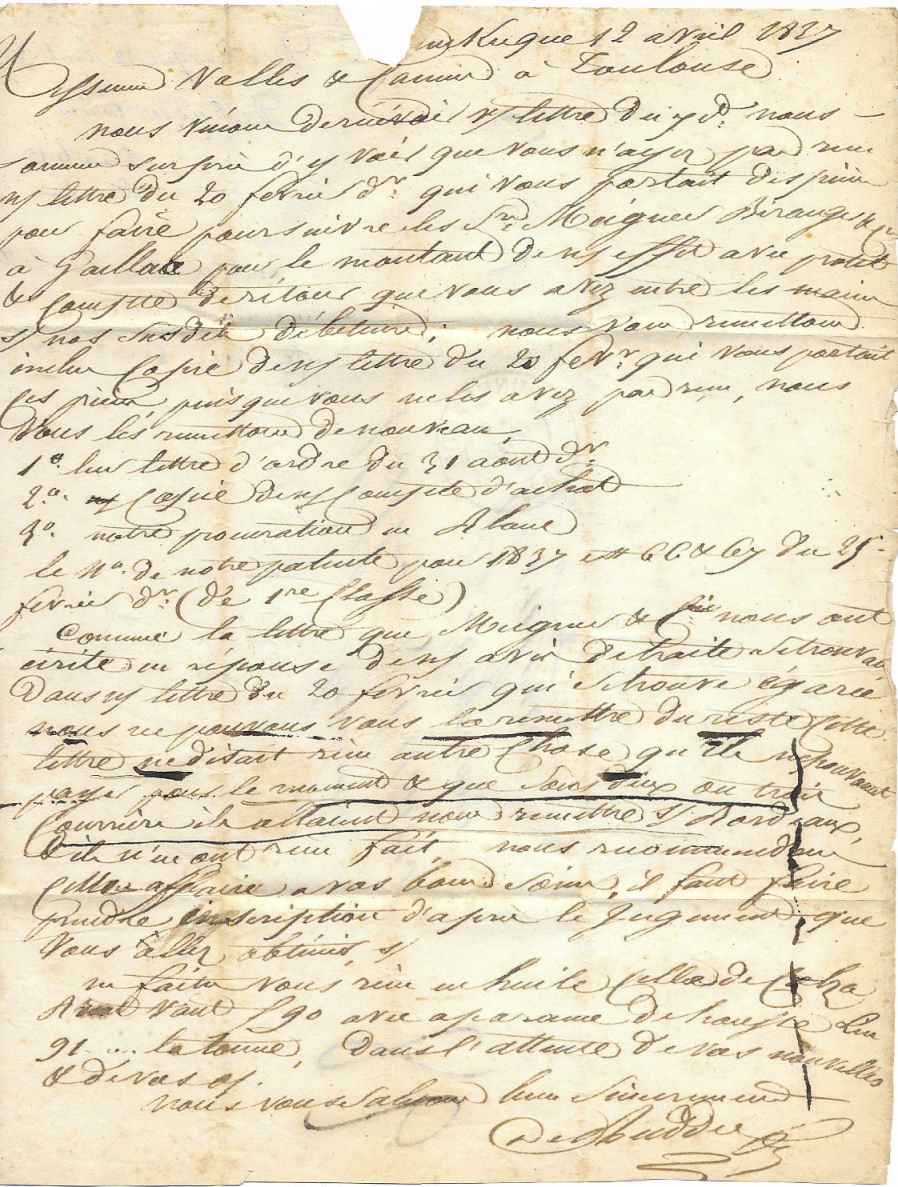 Kerque 12 avril 1837
Messieurs Valles & Camin à Toulouse
nous venons de recevoir n/ lettre du 7 Ct nous
sommes surpris d'y voir que vous n'ayez pas reçu
n/ lettre du 20 fevrier dr. qui vous portait des pieces
pour faire poursuivre les Srs Meignes Berange & Ce
à Gaillac pour le montant de n/ effet avec protet
& compte de retour que vous avez entre les mains
s/ nos susdits débiteurs; nous vous remettons
inclus Copie de n/ lettre du 20 fevr. qui vous portait
ces pieces puisque vous ne les avez pas reçu, nous
vous les remettons de nouveau,
1o. leur lettre d'ordre du 31 août dr.
2o. Copie de n/ Compte d'achat
3o. notre procuration en blanc
le No. de notre patente pour 1837 est 66 & 67 du 25
fevrier dr. (de 1re Classe)
Comme la lettre que Meignes & Cie nous ont
écrite en réponse de n/ avis de traite se trouvait
dans n/ lettre du 20 fevrier qui se trouve égarée
nous ne pouvons vous la remettre du reste cette
lettre ne disait rien autre chose qu'ils ne pouvaient
payer pour le moment & que sous deux ou trois
Courriers ils allaient nous remettre s/ Bordeaux,
& ils n'en ont rien fait, nous recommandons
cette affaire a vos bons soins, il faut faire
prendre inscription d'après le Jugement que
vous allez obtenir, s/
ne faites vous rien en huile celle de Colza
vaut f 90 avec apparence de hausse Lin
91 ... la tonne, dans l'attente de vos nouvelles
& de vos o/.
nous vous saluons bien sincerement